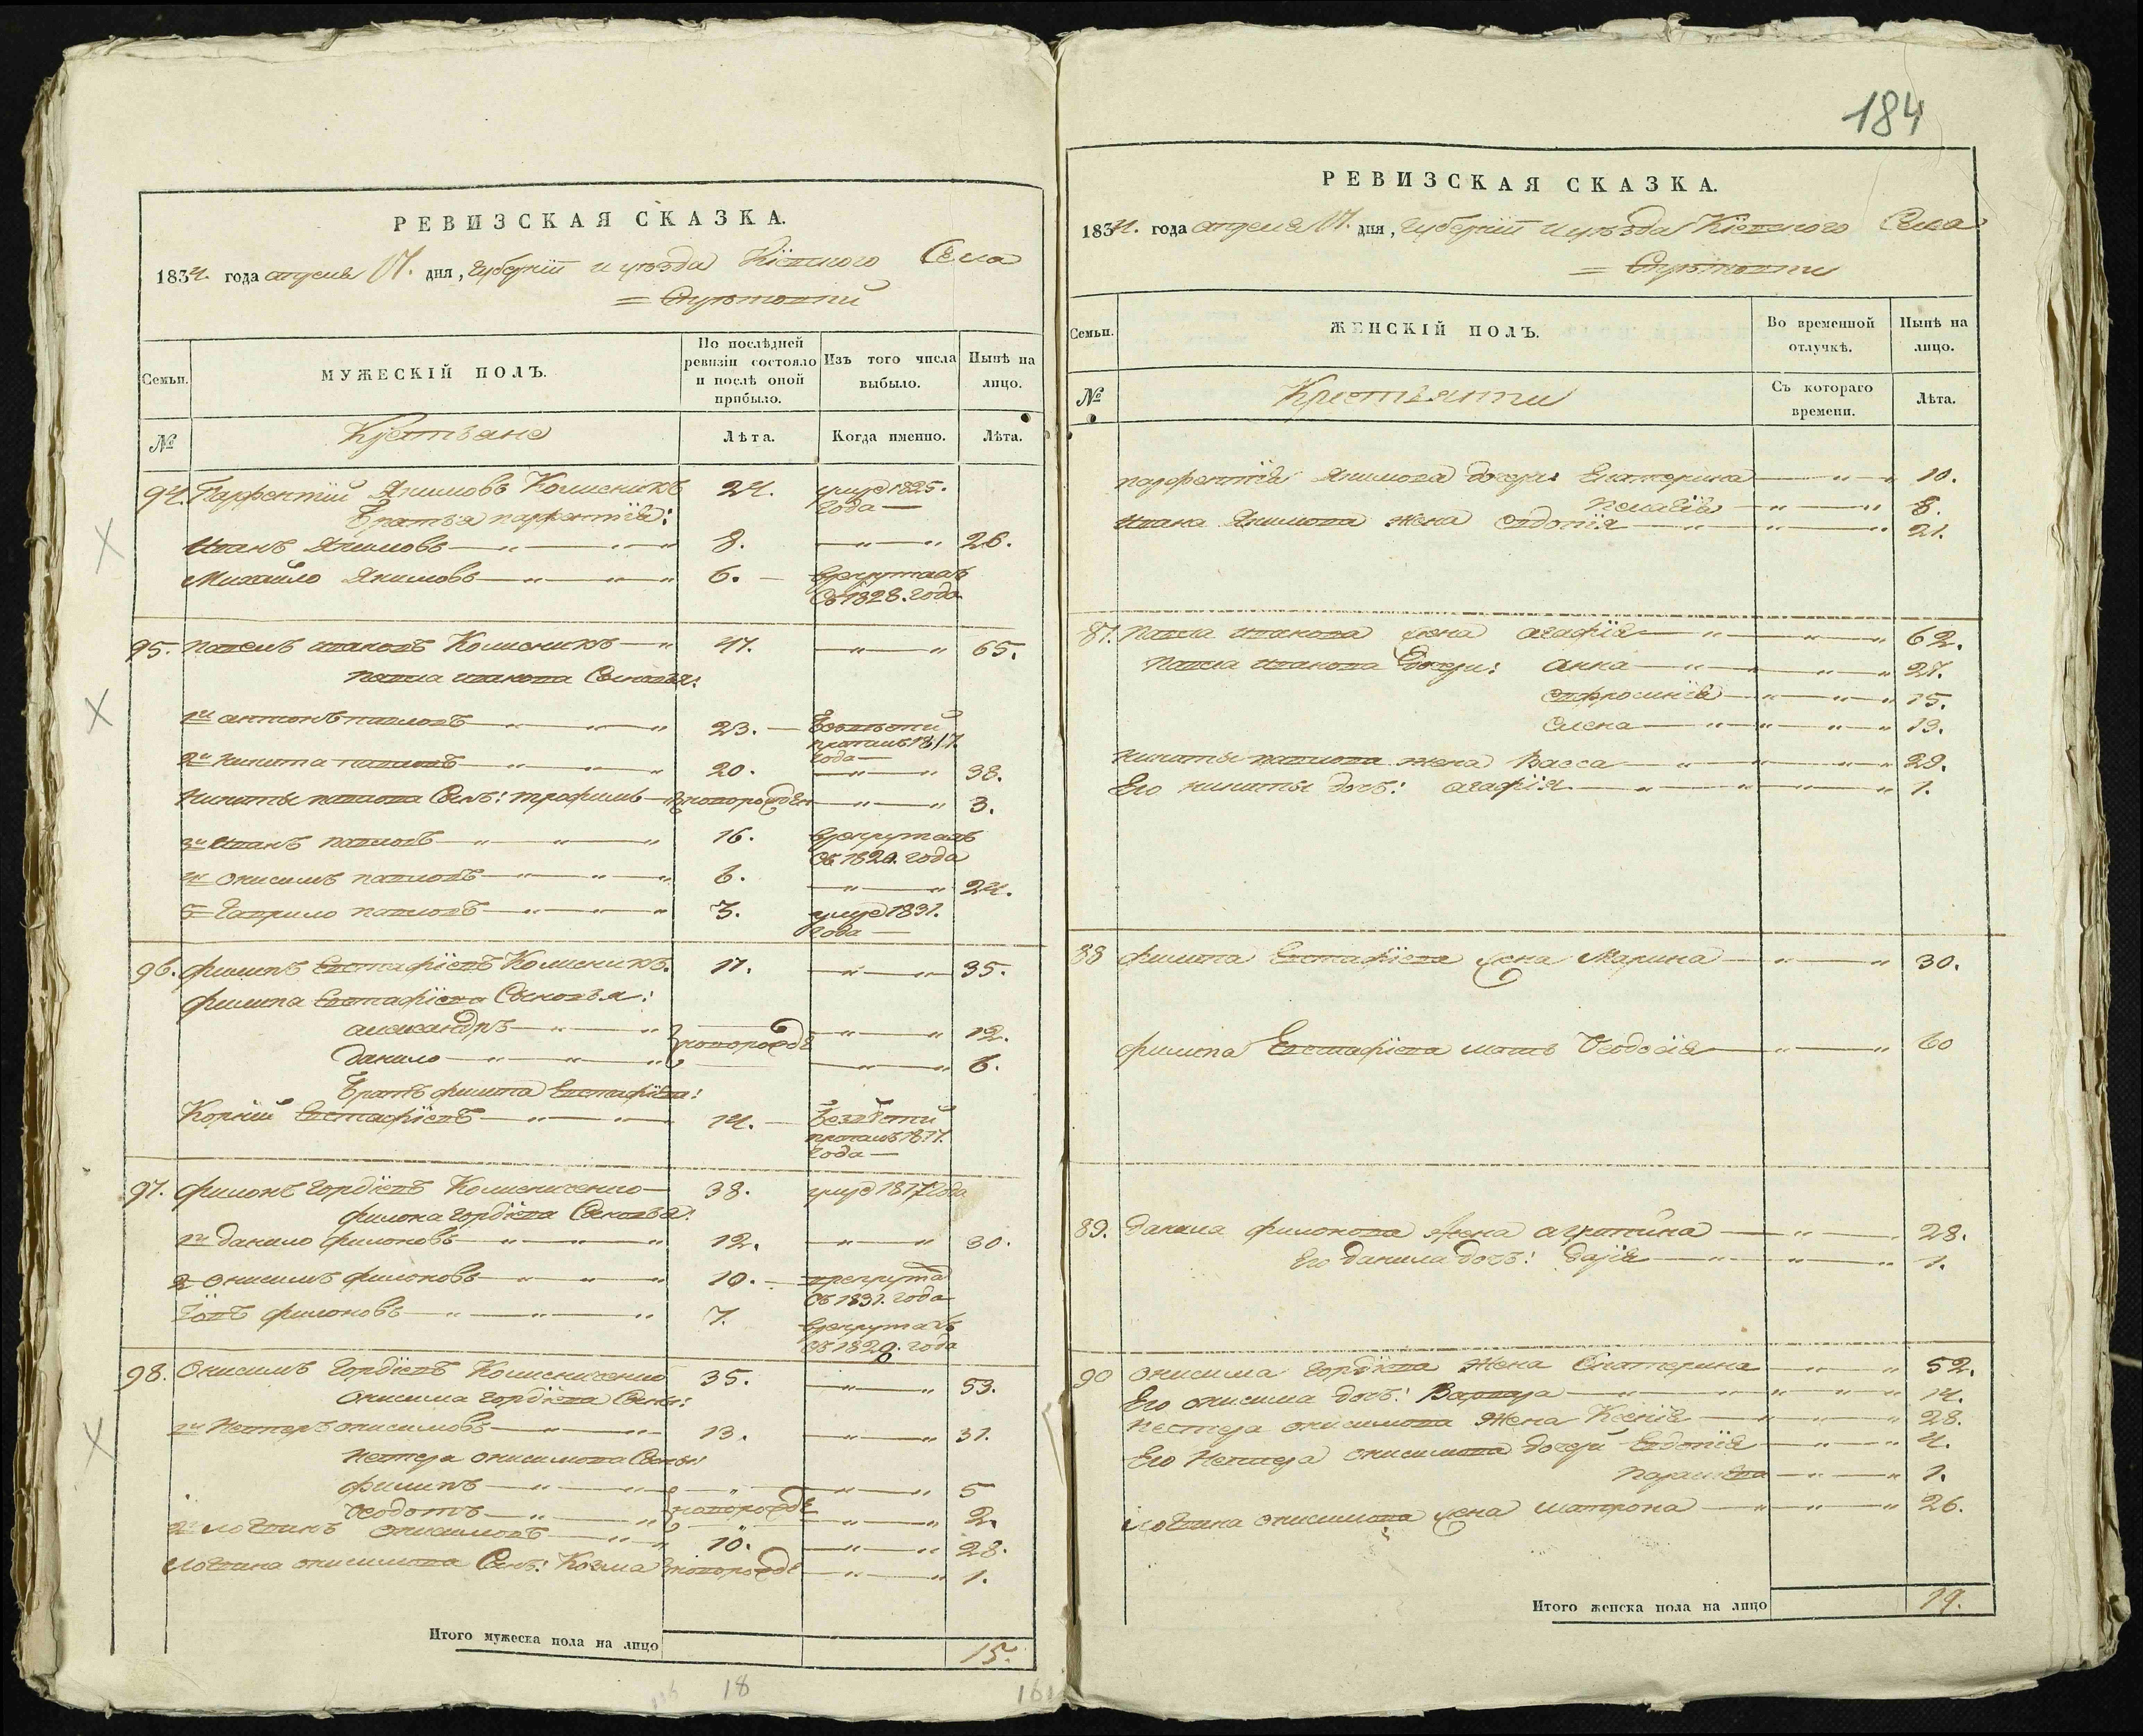 184
РЕВИЗСКАЯ СКАЗКА.
1834. года апреля 17. дня, Губернїи и уѣзда Кїевского Села
=
МУЖЕСКІЙ ПОЛЪ.
Семьи.
По послѣдней ревизіи состояло и послѣ оной прибыло.
Изъ того числа выбыло.
Нынѣ на лицо.
№
Крестьяне
Лѣта.
Когда именно.
Лѣта.
94. Парфентїй Якимовъ Колисникъ 24. умре 1825. года —
Братья парфентїя:
Иванъ Якимовъ — „ — „ 8. — „ — „ 26.
Михайло Якимовъ — „ — „ 6. — врекрутахъ Съ 1828. года
95. павелъ ивановъ Колисникъ — „ 47. — „ — „ 65.
павла иванова Сыновья:
1й антонъ павловъ — „ — „ 23. — года —
2й никита павловъ — „ — „ 20. — „ — „ 38.
никиты павлова Сынъ: трофимъ — новорожден — „ — „ 3.
3й Иванъ павловъ — „ — „ 16. врекрутахъ Съ 1829. года
4й онисимъ павловъ — „ — „ 6. — „ — „ 24.
5 Гаврило павловъ — „ — „ 3. умре 1831. года —
96. филипъ Евстафїевъ Колисникъ. 17. — „ — „ 35.
филипа Евстафїева Сыновья:
александръ — „ — „ новорожде — „ — „ 12.
данило — „ — „ — „ — „ 6.
Братъ филипа Евстафїева:
Корнїй Евстафїевъ — „ — „ 14. — года —
97. филонъ Гордїевъ Колисниченко — 38. умре 1817 года
филона гордїева Сыновья:
1й данило филоновъ — „ — „ 12. — „ — „ 30.
2 онисимъ филоновъ — „ — „ 10. — врекрута Съ 1831. года
филоновъ — „ — „ 7. врекрутахъ Съ 1829. года
98. Онисимъ Гордїевъ Колисниченко 35. — „ — „ 53.
Онисима гордїева Сыны:
1й Нестеръ онисимовъ — „ — 13. — „ — „ 31.
нестера онисимова Сыны:
филипъ — „ — „ — „ — „ 5
Ѳеодотъ — „ — „ новорожде — „ — „ 2.
2й логвинъ онисимовъ — „ — „ 10. — „ — „ 28.
логвина онисимова Сынъ: Козма новорожде — „ — „ 1.
Итого мужеска пола на лицо 15.
18
РЕВИЗСКАЯ СКАЗКА.
1834. года апреля 17. дня, Губернїи и уѣзда Кїевского Села
=
Семьи.
ЖЕНСКІЙ ПОЛЪ.
Во временной отлучкѣ.
Нынѣ на лицо.
№
Крестьянки
Съ котораго времени.
Лѣта.
парфентїя Якимова дочери: Екатерина — „ — „ 10.
пелагїя — „ — „ 8.
Ивана Якимова жена евдокїя — „ — „ 21.
87. павла иванова жена агафїя — „ — „ 62.
павла иванова дочери: анна — „ — „ 27.
евфросинїя — „ — „ 15.
елена — „ — „ 13.
никиты павлова жена Васса — „ — „ 29.
Его никиты дочь: агафїя — „ — „ 1.
88 филипа Евстафїева жена Марина — „ — „ 30.
филипа Евстафїева мать Ѳеодосїя — „ — „ 60
89. данила филонова жена агрипина — „ — 28.
Его данила дочь: дарїя — „ — „ 1.
90 онисима гордїева жена Екатерина — „ — „ 52.
Его онисима дочь: Варвара — „ — „ 14.
нестера онисимова жена Ксенїя — „ — „ 28.
Его Нестера онисимова дочери Евдокїя — „ — „ 4.
— „ — „ 1.
логвина онисимова жена матрона — „ — „ 26.
Итого женска пола на лицо 19.